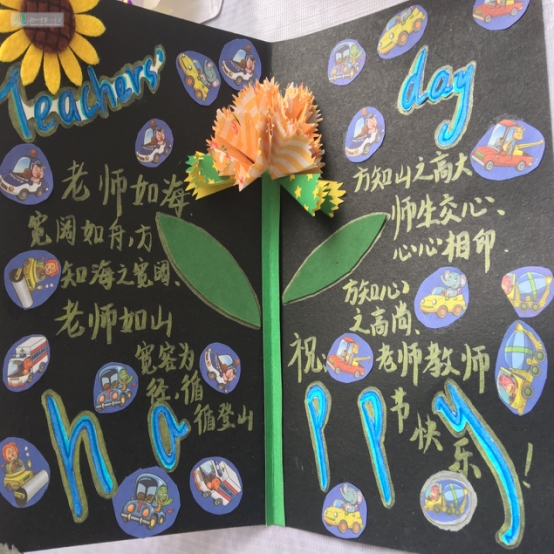 Teachers'
day
老师如海
宽阔如舟,方
知海之宽阔、
老师如山
宽容为
径,循
循登山
方知山之高大
师生交心、
心心相印
方知心
之高尚、
祝、老师教师
节
快
乐!
happy